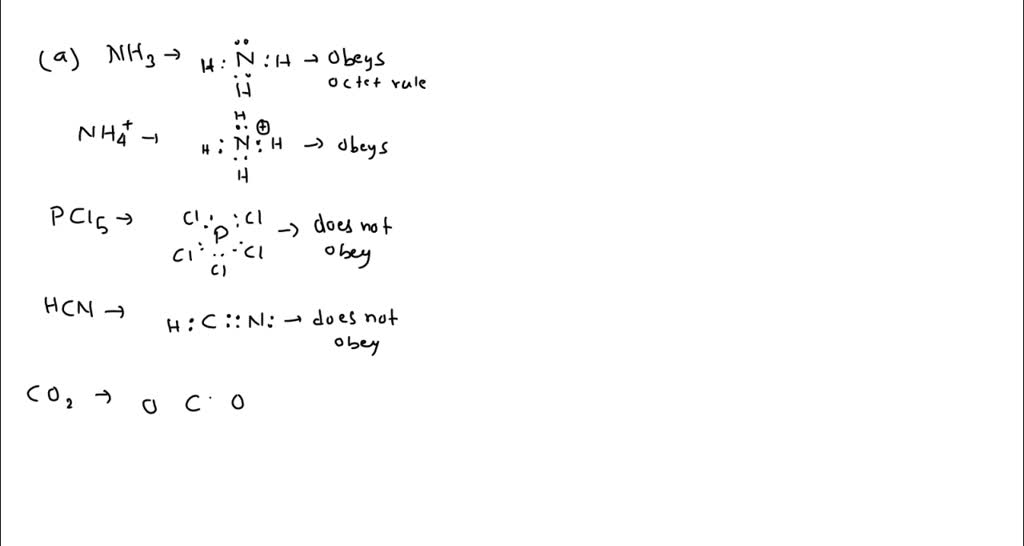 (a) NH3 → H : N : H → obeys
octet rule
H
H
NH4+ → H : N : H → obeys
H
PCl5 → Cl Cl → does not
P
Cl Cl obey
Cl
HCN → H : C :: N : → does not
obey
CO2 → O C O